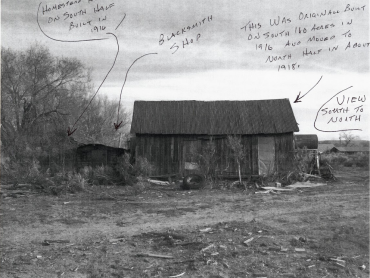 HOMESTEAD
ON SOUTH HALF
BUILT IN
1916
BLACKSMITH
SHOP
THIS WAS ORIGINALL BUILT
ON SOUTH 160 ACRES IN
1916 AND MOVED TO
NORTH HALF IN ABOUT
1918.
VIEW
SOUTH TO
NORTH